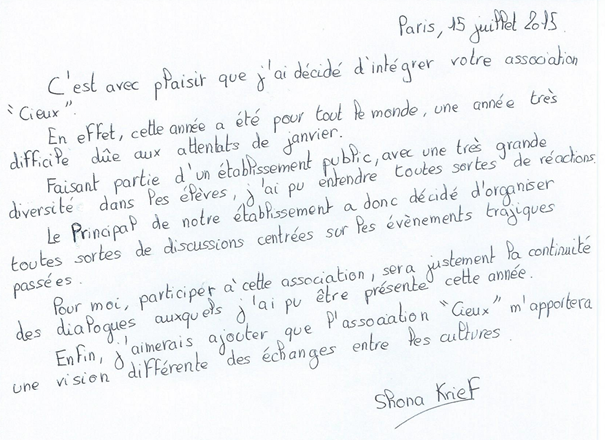 Paris, 15 juillet 2015.
C'est avec plaisir que j'ai décidé d'intégrer votre association
"Cieux".
En effet, cette année a été pour tout le monde, une année très
difficile dûe aux attentats de janvier.
Faisant partie d'un établissement public, avec une très grande
diversité dans les élèves, j'ai pu entendre toutes sortes de réactions.
Le Principal de notre établissement a donc décidé d'organiser
toutes sortes de discussions centrées sur les évènements tragiques
passées.
Pour moi, participer à cette association, sera justement la continuité
des dialogues auxquels j'ai pu être présente cette année.
Enfin, j'aimerais ajouter que l'association "Cieux" m'apportera
une vision différente des échanges entre les cultures.
Shona Krief